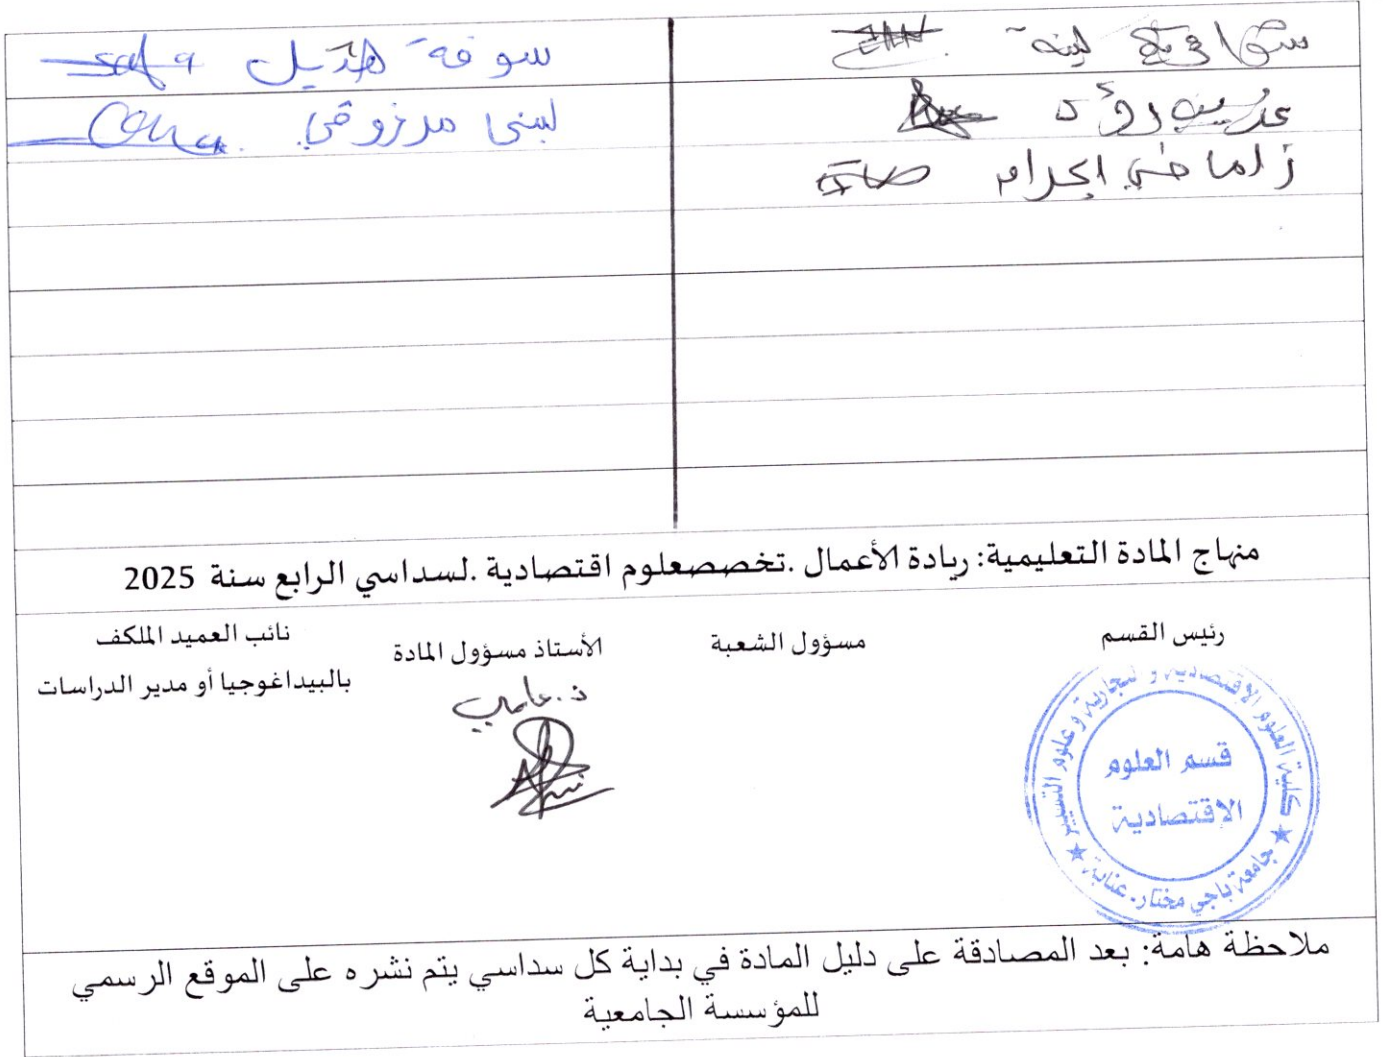 لينة
سوفة هديل
رؤى
لبنى مرزوقي
منهاج المادة التعليمية: ريادة الأعمال .تخصصعلوم اقتصادية .لسداسي الرابع سنة 2025
رئيس القسم
مسؤول الشعبة
الأستاذ مسؤول المادة
نائب العميد الملكف
بالبيداغوجيا أو مدير الدراسات
كلية العلوم الاقتصادية و التجارية وعلوم التسيير
قسم العلوم
الإقتصادية
جامعة باجي مختار. عنابة
ملاحظة هامة: بعد المصادقة على دليل المادة في بداية كل سداسي يتم نشره على الموقع الرسمي
للمؤسسة الجامعية